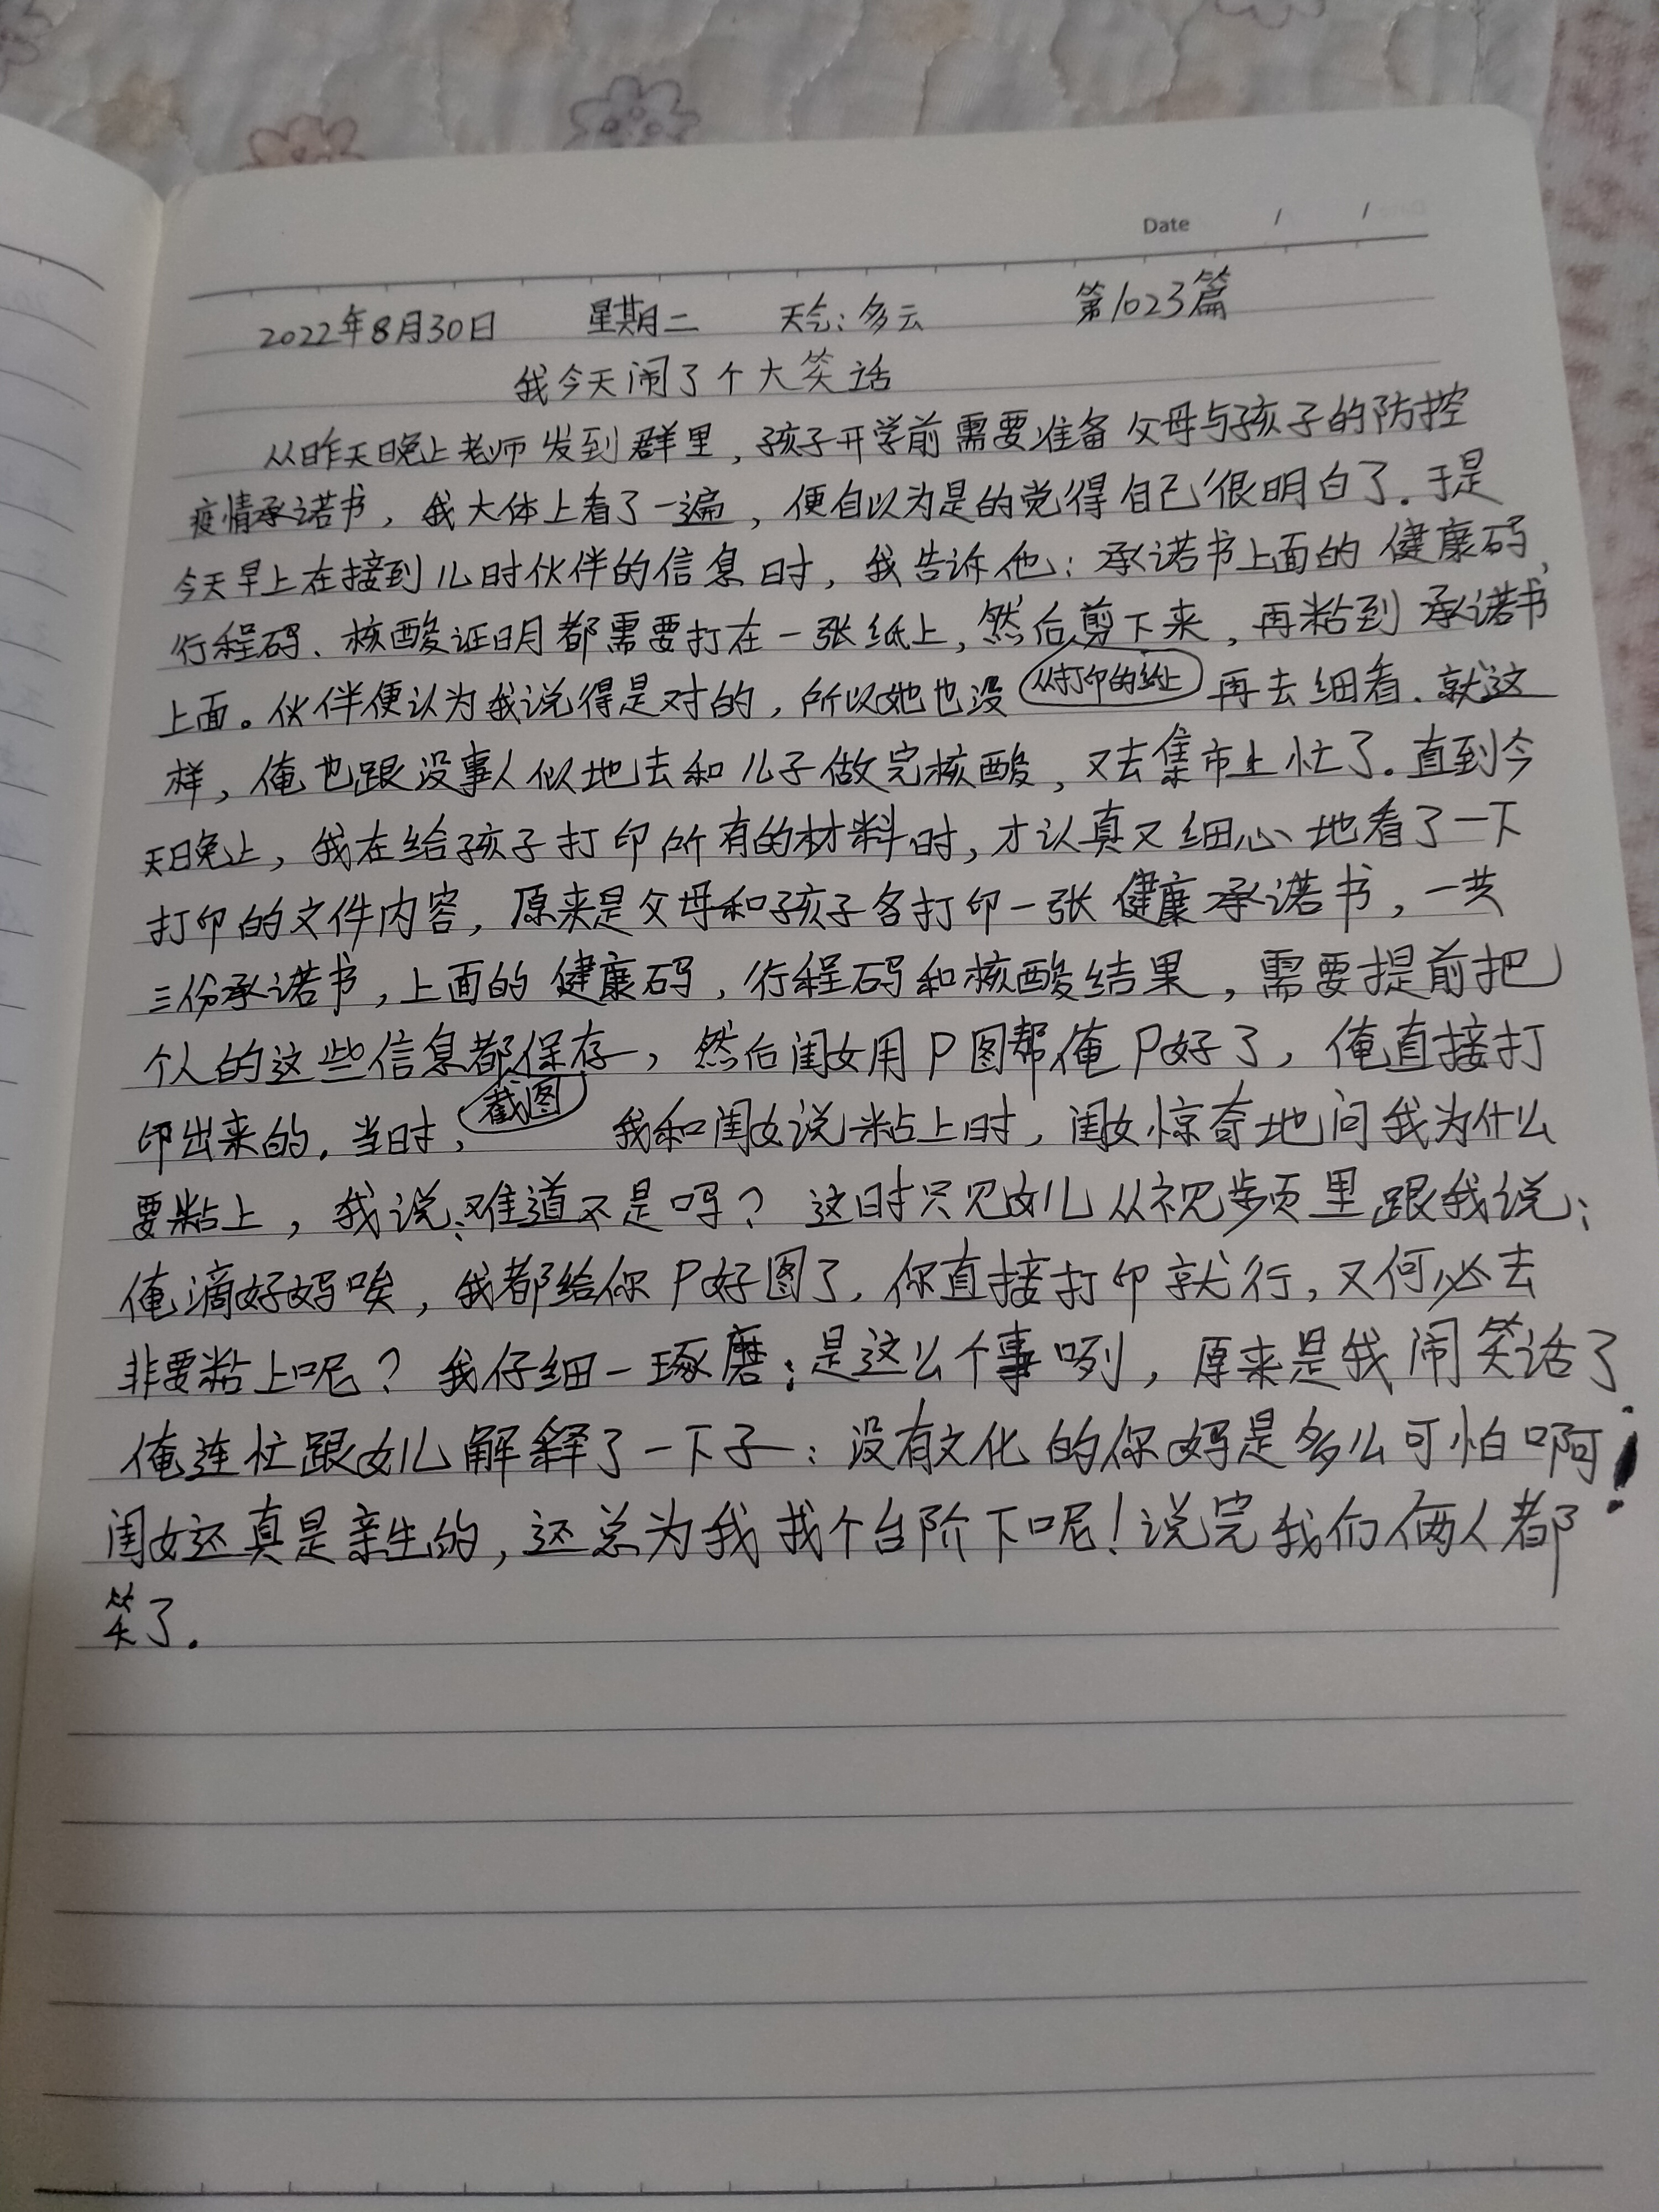 Date / /
2022年8月30日 星期二 天气:多云 第1023篇
我今天闹了个大笑话
从昨天晚上老师发到群里,孩子开学前需要准备父母与孩子的防控
疫情承诺书,我大体上看了一遍,便自以为是的觉得自己很明白了.于是
今天早上在接到儿时伙伴的信息时,我告诉他:承诺书上面的健康码、
行程码、核酸证明都需要打在一张纸上,然后剪下来,再粘到承诺书
上面。伙伴便认为我说得是对的,所以她也没再去细看.就这
从打印的纸上
样,俺也跟没事人似地去和儿子做完核酸,又去集市上忙了.直到今
天晚上,我在给孩子打印所有的材料时,才认真又细心地看了一下
打印的文件内容,原来是父母和孩子各打印一张健康承诺书,一共
三份承诺书,上面的健康码,行程码和核酸结果,需要提前把
个人的这些信息都保存,然后闺女用P图帮俺P好了,俺直接打
截图
印出来的.当时,我和闺女说粘上时,闺女惊奇地问我为什么
要粘上,我说:难道不是吗?这时只见女儿从视频里跟我说:
俺滴好妈唉,我都给你P好图了,你直接打印就行,又何必去
非要粘上呢?我仔细一琢磨:是这么个事咧,原来是我闹笑话了
俺连忙跟女儿解释了一下子:没有文化的你妈是多么可怕啊!
闺女还真是亲生的,还总为我找个台阶下呢!说完我们俩人都
笑了.